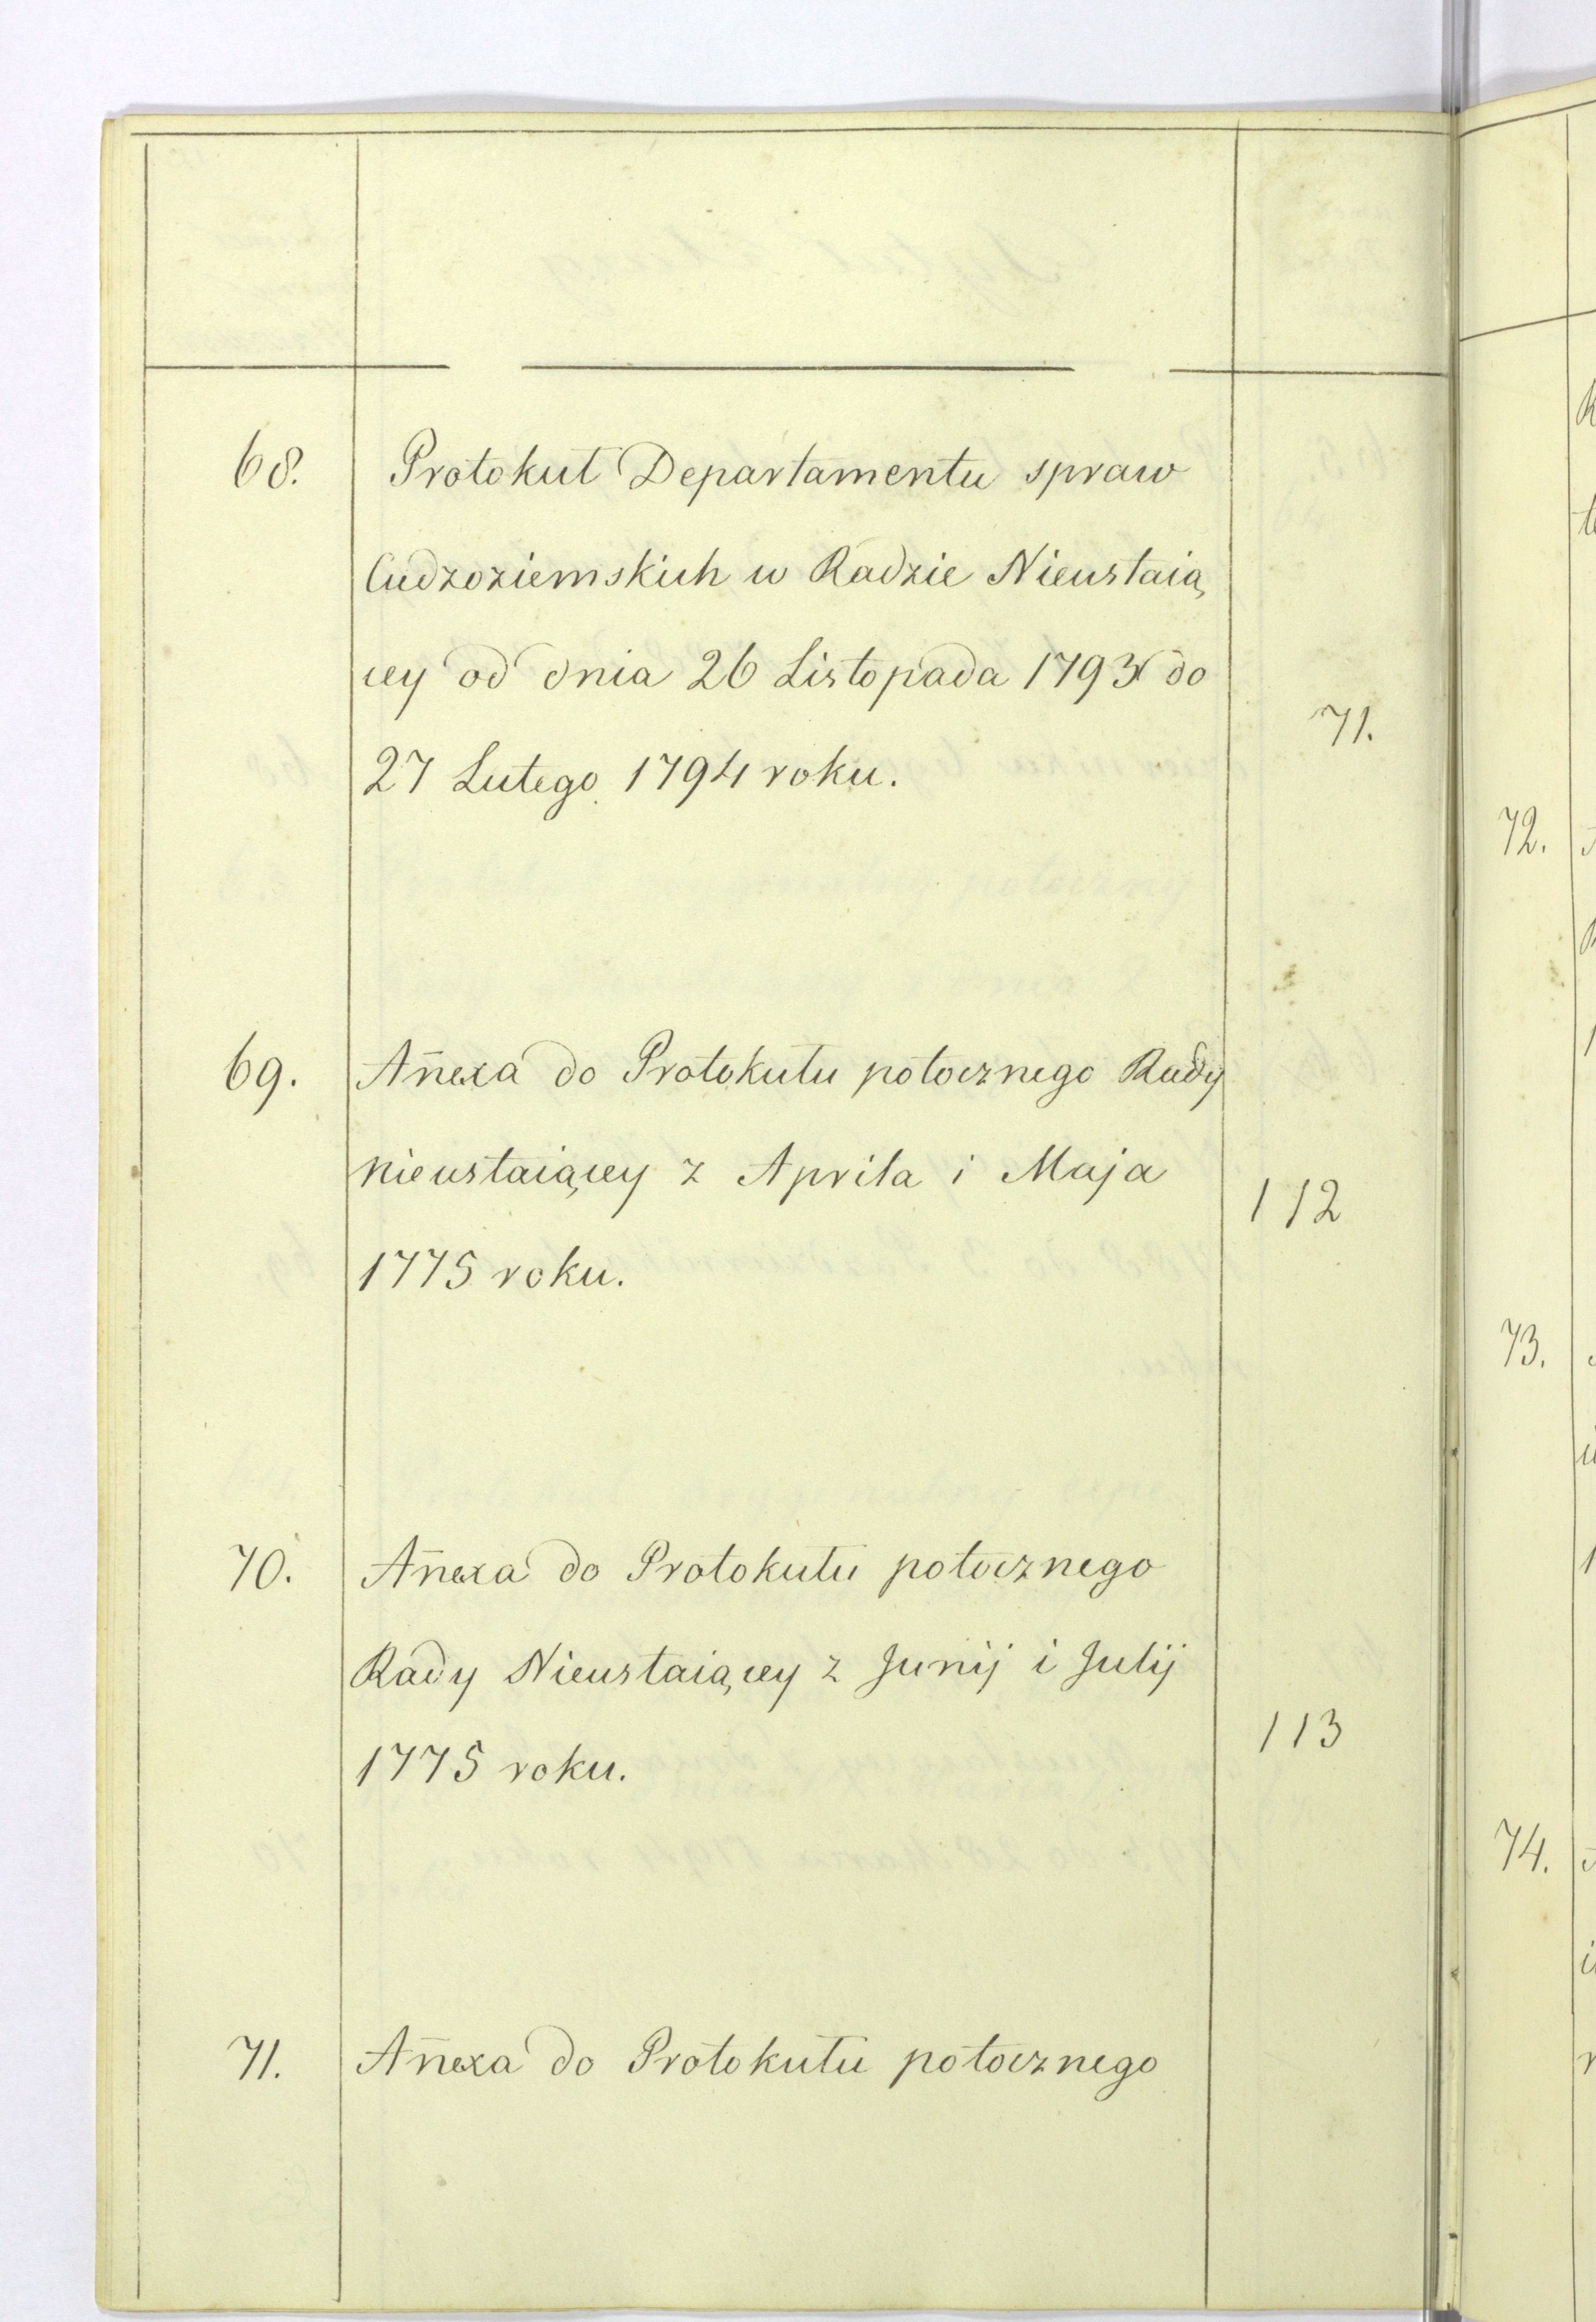 68. Protokuł Departamentu spraw
Cudzoziemskich w Radzie Nieustaią
cey od dnia 26 Listopada 1793 do
71.
27 Lutego 1794 roku.
69. Añexa do Protokułu potocznego Rady
nieustaiącey z Aprila i Maja
112
1775 roku.
70. Añexa do Protokułu potocznego
Rady Nieustaiącey z Junij i Julij
113
1775 roku.
71. Añexa do Protokułu potocznego
72.
73.
74.